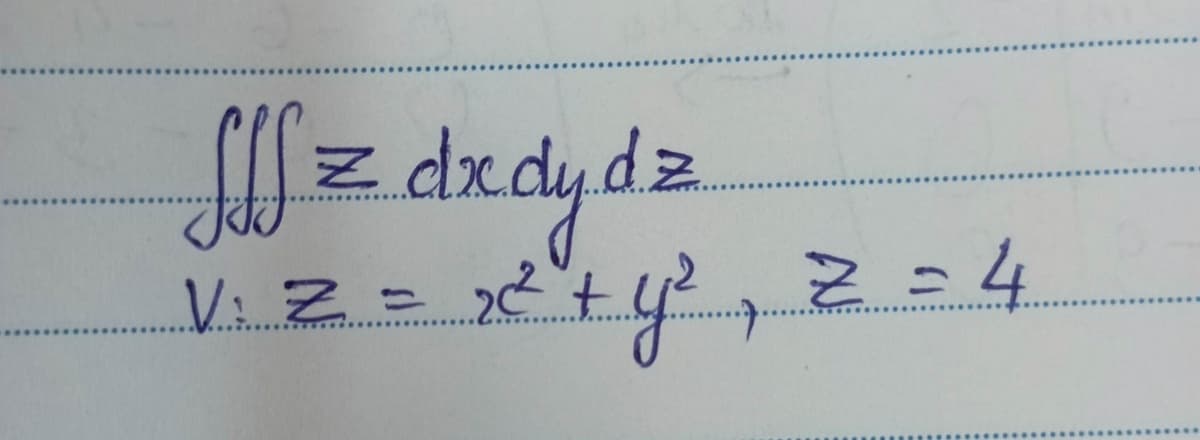 ∭ z dx dy dz
V: z = x² + y², z = 4